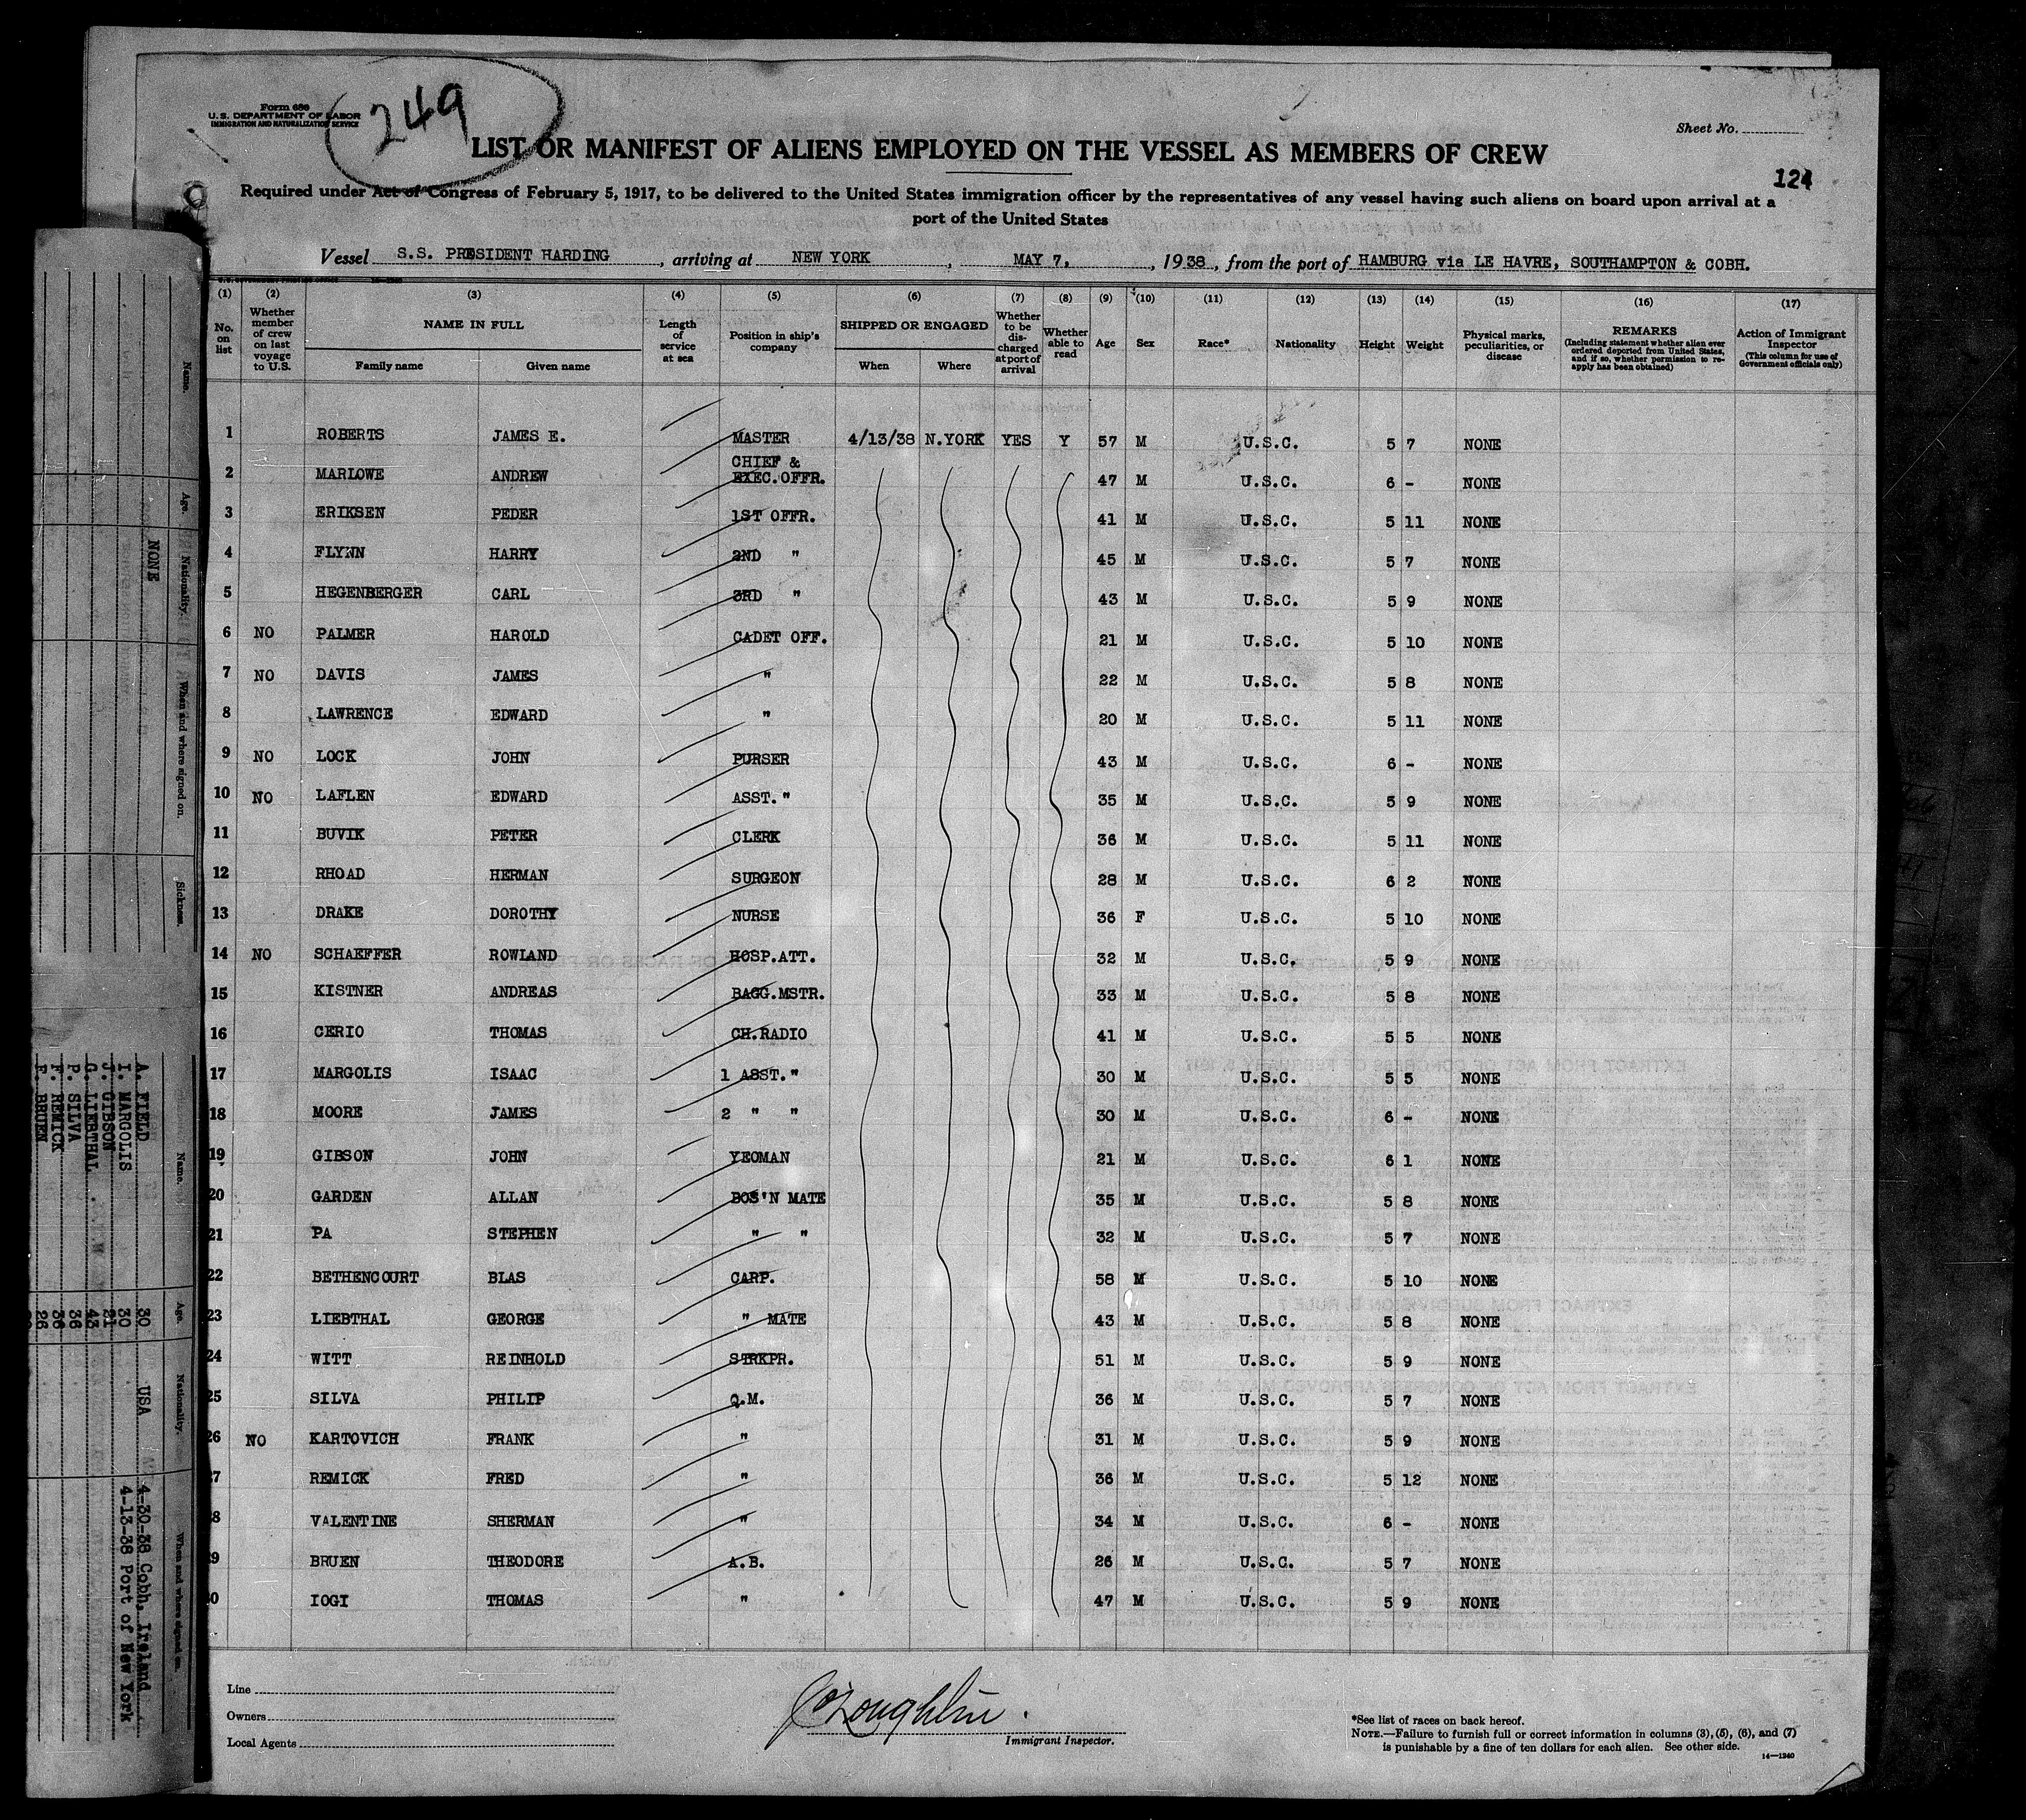 249
Form 680
U.S. DEPARTMENT OF LABOR
IMMIGRATION AND NATURALIZATION SERVICE
Sheet No.
LIST OR MANIFEST OF ALIENS EMPLOYED ON THE VESSEL AS MEMBERS OF CREW
124
Required under Act of Congress of February 5, 1917, to be delivered to the United States immigration officer by the representatives of any vessel having such aliens on board upon arrival at a
port of the United States
Vessel S.S. PRESIDENT HARDING, arriving at NEW YORK, MAY 7, 1938, from the port of HAMBURG via LE HAVRE, SOUTHAMPTON & COBH.
(1) (2) (3) (4) (5) (6) (7) (8) (9) (10) (11) (12) (13) (14) (15) (16) (17)
No. on list
Whether member of crew on last voyage to U.S.
NAME IN FULL
Family name
Given name
Length of service at sea
Position in ship's company
SHIPPED OR ENGAGED
When
Where
Whether to be discharged at port of arrival
Whether able to read
Age
Sex
Race*
Nationality
Height
Weight
Physical marks, peculiarities, or disease
REMARKS
(Including statement whether alien ever ordered deported from United States, and if so, whether permission to re-apply has been obtained)
Action of Immigrant Inspector
(This column for use of Government officials only)
1 ROBERTS JAMES E. MASTER 4/13/38 N.YORK YES Y 57 M U.S.C. 5 7 NONE
2 MARLOWE ANDREW CHIEF & EXEC.OFFR. 47 M U.S.C. 6 - NONE
3 ERIKSEN PEDER 1ST OFFR. 41 M U.S.C. 5 11 NONE
4 FLYNN HARRY 2ND " 45 M U.S.C. 5 7 NONE
5 HEGENBERGER CARL 3RD " 43 M U.S.C. 5 9 NONE
6 NO PALMER HAROLD CADET OFF. 21 M U.S.C. 5 10 NONE
7 NO DAVIS JAMES " 22 M U.S.C. 5 8 NONE
8 LAWRENCE EDWARD " 20 M U.S.C. 5 11 NONE
9 NO LOCK JOHN PURSER 43 M U.S.C. 6 - NONE
10 NO LAFLEN EDWARD ASST. " 35 M U.S.C. 5 9 NONE
11 BUVIK PETER CLERK 36 M U.S.C. 5 11 NONE
12 RHOAD HERMAN SURGEON 28 M U.S.C. 6 2 NONE
13 DRAKE DOROTHY NURSE 36 F U.S.C. 5 10 NONE
14 NO SCHAEFFER ROWLAND HOSP.ATT. 32 M U.S.C. 5 9 NONE
15 KISTNER ANDREAS BAGG.MSTR. 33 M U.S.C. 5 8 NONE
16 CERIO THOMAS CH.RADIO 41 M U.S.C. 5 5 NONE
17 MARGOLIS ISAAC 1 ASST. " 30 M U.S.C. 5 5 NONE
18 MOORE JAMES 2 " " 30 M U.S.C. 6 - NONE
19 GIBSON JOHN YEOMAN 21 M U.S.C. 6 1 NONE
20 GARDEN ALLAN BOS'N MATE 35 M U.S.C. 5 8 NONE
21 PA STEPHEN " " 32 M U.S.C. 5 7 NONE
22 BETHENCOURT BLAS CARP. 58 M U.S.C. 5 10 NONE
23 LIEBTHAL GEORGE " MATE 43 M U.S.C. 5 8 NONE
24 WITT REINHOLD STRKPR. 51 M U.S.C. 5 9 NONE
25 SILVA PHILIP Q.M. 36 M U.S.C. 5 7 NONE
26 NO KARTOVICH FRANK " 31 M U.S.C. 5 9 NONE
7 REMICK FRED " 36 M U.S.C. 5 12 NONE
8 VALENTINE SHERMAN " 34 M U.S.C. 6 - NONE
9 BRUEN THEODORE A.B. 26 M U.S.C. 5 7 NONE
0 IOGI THOMAS " 47 M U.S.C. 5 9 NONE
Line
Owners
Local Agents
Immigrant Inspector.
*See list of races on back hereof.
NOTE.—Failure to furnish full or correct information in columns (3), (5), (6), and (7)
is punishable by a fine of ten dollars for each alien. See other side.
14—1240
Name. Age. Nationality. When and where signed on. Sickness.
NONE
Name. Age. Nationality. When and where signed on.
A. FIELD 30 USA 4-30-38 Cobh, Ireland
I. MARGOLIS 30 4-13-38 Port of New York
J. GIBSON 21
G. LIEBTHAL 43
P. SILVA 36
F. REMICK 36
F. BRUEN 26